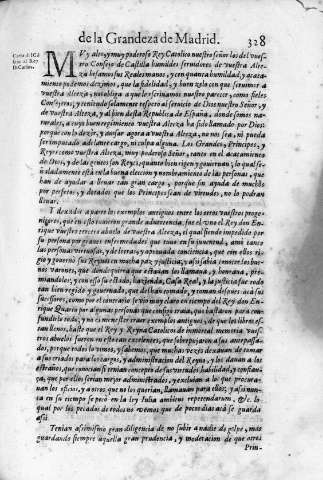 de la Grandeza de Madrid. 328
Carta del Cõsejo al Rey D. Carlos.
MVy alto, y muy poderoso Rey Catolico nuestro señor los del vuestro Consejo de Castilla humildes seruidores de vuestra Alteza besamos sus Reales manos, y con quanta humildad, y acatamiento podemos dezimos, que la fidelidad, y buen zelo con que
vuestra Alteza, nos obliga a que le siruamos nuestro parecer, como fieles
Consejeros, y teniendo solamente respeto al seruicio de Dios nuestro Señor, y
de vuestra Alteza, y al bien desta Republica de España, donde somos naturales, a cuyo buen regimiento vuestra Alteza ha sido llamado por Dios:
porque con lo dezir, y auisar agora a vuestra Alteza, no nos sea, ni pueda
ser imputado adelante cargo, ni culpa alguna. Los Grandes, Principes, y
Reyes como vuestra Alteza, muy poderoso Señor, tanto en el acatamiento
de Dios, y de las gentes son Reyes, quanto bien rigen y gouiernan; lo qual señaladamente està en la buena eleccion y nombramiento de las personas, que
han de ayudar a lleuar tan gran cargo, porque sin ayuda de muchos
por perfetos, y dotados que los Principes sean de virtudes, no lo podran
lleuar.
Y dexados a parte los exemplos antiguos entre los otros vuestros progenitores, que en esto tuuieron grande aduertencia, fue el vno el Rey don Enrique vuestro tercero abuelo de vuestra Alteza, el qual siendo impedido por
su persona por graues enfermedades que tuuo en su juuentud, amò tanto
las personas virtuosas, y de letras, y aprouada conciencia, que con ellos regio y gouernò sus Reynos en mucha paz y justicia, y assi sabia conocer los buenos varones, que donde quiera que estauan los llamaua, y honraua, premiandolos, y con esso su estado, hazienda, Casa Real, y la justicia fue todo
tan bien regido y gouernado, que dexò renombre, y tomaron dessea à sus sucessores, como por el contrario se vio muy claro en tiempo del Rey don Enrique Quarto por algunas personas que consigo traìa, que bastaron para confundirlo todo, y no es menester traer exemplos antiguos, de que los libros estan llenos, hasta que el Rey y Reyna Catolicos de inmortal memoria vuestros abuelos fueron en esto tan excelentes, que sobrepujaron a sus antepassados, porque todos lo vimos, y sabemos, que muchas vezes dexauan de tomar
a sus criados para los cargos, y administracion del Reyno, y los dauan a los
estraños, que conocian si tenian concepto de sus virtudes, habilidad, y confiança, que por ellos serian mejor administrados, y excluian a los que procurauan los oficios, y a otros que no los querian, llamauan para ellos; y assi nunca en su tiempo se pecò en la ley Iulia ambitus repetundarum, &c. lo
qual por los pecados de todos no vemos que de pocos dias acà se guarda
assi.
Tenian assimismo gran diligencia de no subir a nadie de golpe, mas
guardando siempre aquella gran prudencia, y moderacion de que otros
Prin-